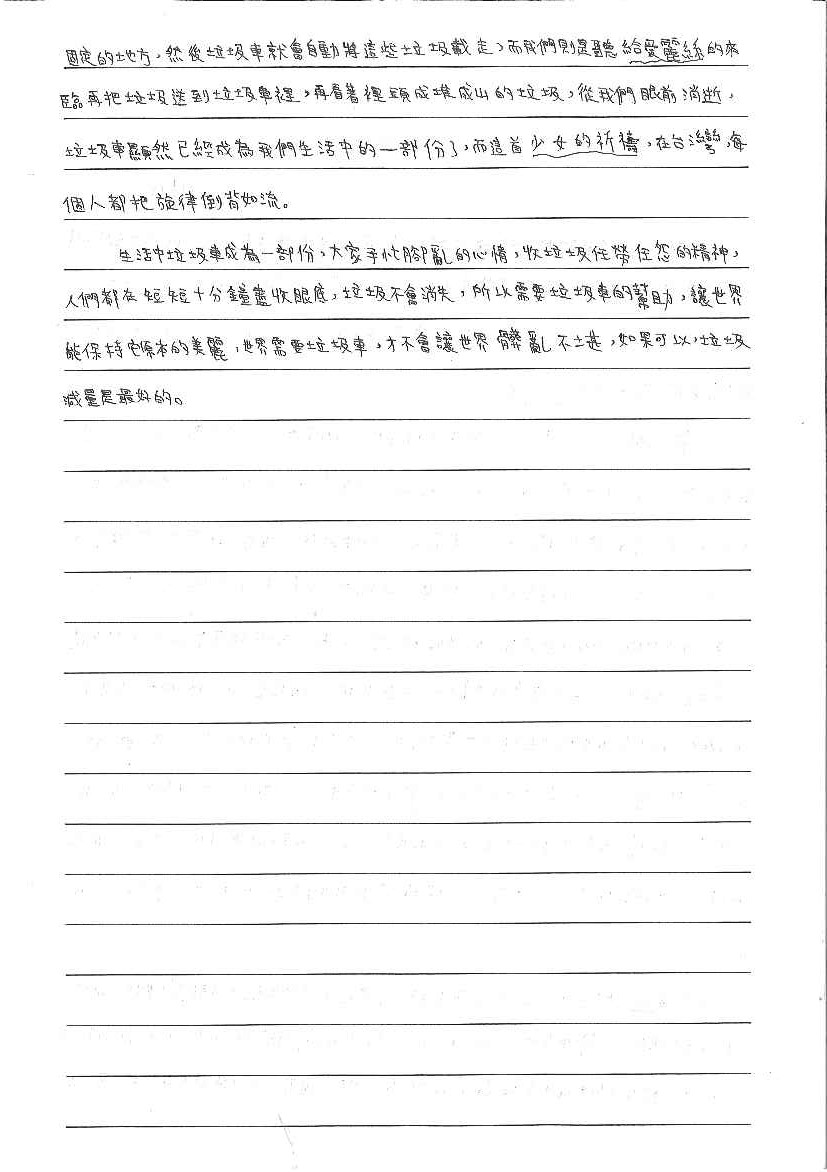 固定的地方，然後垃圾車就會自動將這些垃圾載走，而我們則是聽給愛麗絲的來
臨再把垃圾送到垃圾車裡，再看著裡頭成堆成山的垃圾，從我們眼前消逝，
垃圾車顯然已經成為我們生活中的一部份了，而這首少女的祈禱，在台灣，每
個人都把旋律倒背如流。
生活中垃圾車成為一部份，大家手忙腳亂的心情，收垃圾任勞任怨的精神，
人們都在短短十分鐘盡收眼底，垃圾不會消失，所以需要垃圾車的幫助，讓世界
能保持它原本的美麗，世界需要垃圾車，才不會讓世界髒亂不堪，如果可以，垃圾
減量是最好的。